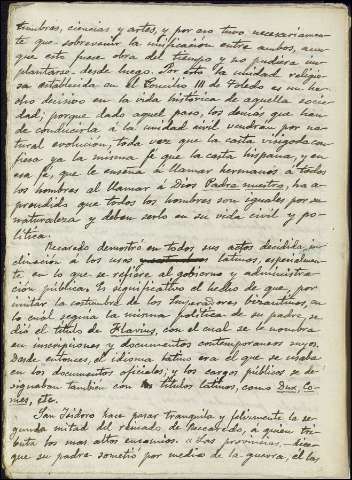 tumbres, ciencias y artes, y por eso tuvo necesariamen-
te que sobrevenir la unificación entre ambos, aun-
que esto fuese obra del tiempo y no pudiera im-
plantarse desde luego. Por esto la unidad religio-
sa establecida en el Concilio III de Toledo es un he-
cho decisivo en la vida histórica de aquella socie-
dad; porque dado aquel paso, los demás que han
de conducirla á la unidad civil vendrán por na-
tural evolución, toda vez que la casta visigoda con-
fiesa ya la misma fe que la casta hispana, y en
esa fe, que le enseña á llamar hermanos á todos
los hombres al llamar á Dios Padre nuestro, ha a-
prendido que todos los hombres son iguales por su
naturaleza y deben serlo en su vida civil y po-
lítica.
Recaredo demostró en todos sus actos decidida in-
clinación á los usos latinos, especialmen-
te en lo que se refiere al gobierno y administra-
ción pública. Es significativo el hecho de que, por
imitar la costumbre de los Emperadores bizantinos, en
lo cual seguía la misma política de su padre, se
dió el título de Flavius, con el cual se le nombra
en inscripciones y documentos contemporaneos suyos.
Desde entonces, el idioma latino era el que se usaba
en los documentos oficiales, y los cargos públicos se de-
signaban también con títulos latinos, como Dux, Co-
mes, etc.
San Isidoro hace pasar tranquila y felizmente la se-
gunda mitad del reinado de Recaredo, á quien tri-
buta los mas altos encomios. «Las provincias, — dice —
que su padre sometió por medio de la guerra, él las